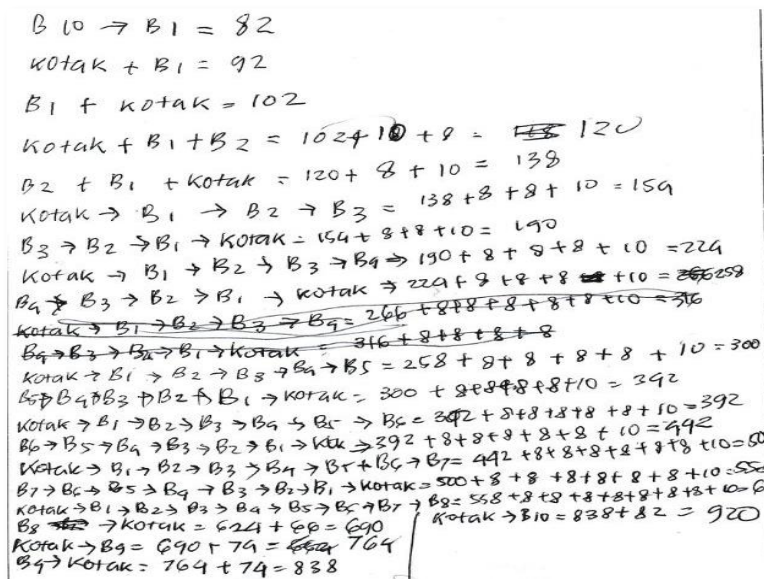 B 10 → B1 = 82
Kotak + B1 = 92
B1 + kotak = 102
Kotak + B1 + B2 = 102 + 10 + 8 = 120
B2 + B1 + Kotak = 120 + 8 + 10 = 138
Kotak → B1 → B2 → B3 = 138 + 8 + 8 + 10 = 154
B3 → B2 → B1 → Kotak = 154 + 8 + 8 + 10 = 190
Kotak → B1 → B2 → B3 → B4 → 190 + 8 + 8 + 8 + 10 = 224
B4 → B3 → B2 → B1 → Kotak → 224 + 8 + 8 + 8 + 10 = 258
Kotak → B1 → B2 → B3 → B4 = 266 + 8 + 8 + 8 + 8 + 10 = 316
B4 → B3 → B2 → B1 → Kotak = 316 + 8 + 8 + 8 + 8
Kotak → B1 → B2 → B3 → B4 → B5 = 258 + 8 + 8 + 8 + 8 + 10 = 300
B5 → B4 → B3 → B2 → B1 → Kotak = 300 + 8 + 8 + 8 + 8 + 10 = 342
Kotak → B1 → B2 → B3 → B4 → B5 → B6 = 342 + 8 + 8 + 8 + 8 + 10 = 392
B6 → B5 → B4 → B3 → B2 → B1 → → 392 + 8 + 8 + 8 + 8 + 8 + 10 = 442
Kotak → B1 → B2 → B3 → B4 → B5 + B6 → B7 = 442 + 8 + 8 + 8 + 8 + 8 + 8 + 10 =
B7 → B6 → B5 → B4 → B3 → B2 → B1 → Kotak = 500 + 8 + 8 + 8 + 8 + 8 + 8 + 10 =
Kotak → B1 → B2 → B3 → B4 → B5 → B6 → B7 → B8 = 558 + 8 + 8 + 8 + 8 + 8 + 8 + 8 + 10 =
B8 → Kotak = 624 + 66 = 690
Kotak → B9 = 690 + 74 = 764
B9 → Kotak = 764 + 74 = 838
Kotak → B10 = 838 + 82 = 920